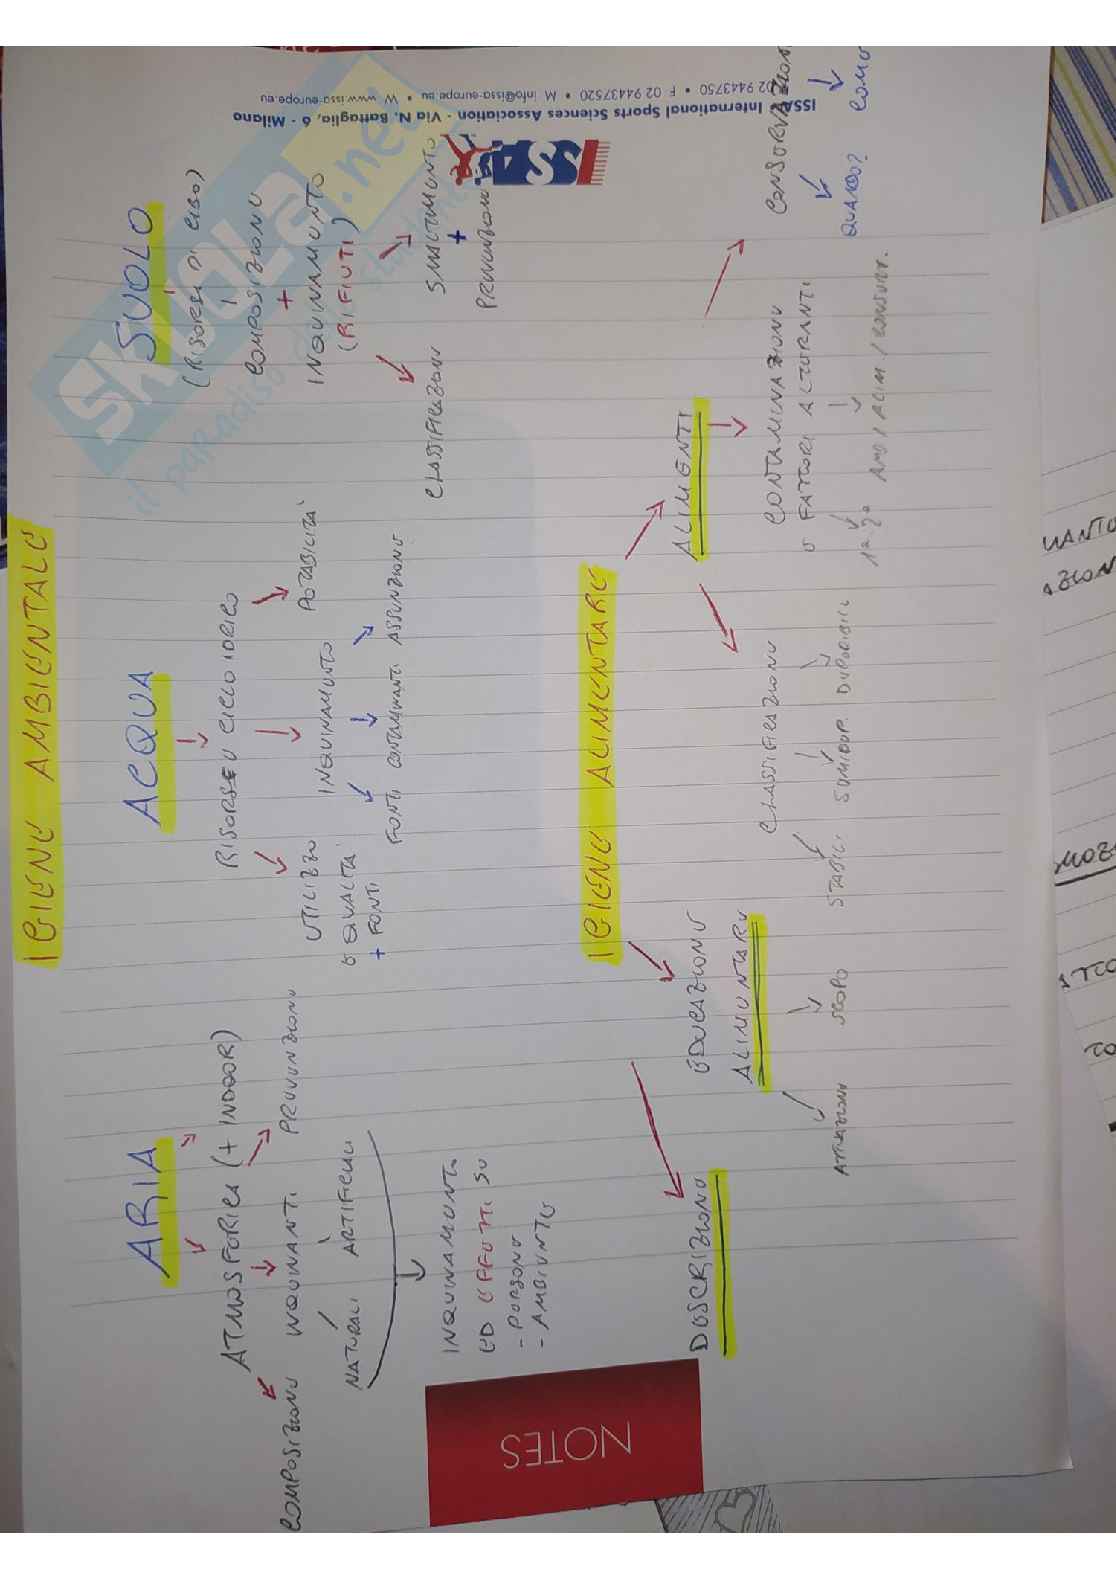 IGIENE AMBIENTALE
ARIA
ATMOSFERICA (+ INDOOR)
COMPOSIZIONE
INQUINANTI
PREVENZIONE
NATURALI
ARTIFICIALI
INQUINAMENTO
ED EFFETTI SU
- PERSONE
- AMBIENTE
ACQUA
RISORSE E CICLO IDRICO
UTILIZZO
E QUALITA'
+ FONTI
INQUINAMENTO
POTABILITA'
FONTI
CONTAMINANTI
ASSUNZIONE
SUOLO
(RISORSE DI CIBO)
COMPOSIZIONE
+
INQUINAMENTO
(RIFIUTI)
CLASSIFICAZIONE
SMALTIMENTO
+
PREVENZIONE
IGIENE ALIMENTARE
DESCRIZIONE
EDUCAZIONE
ALIMENTARE
SCOPO
ALIMENTI
CLASSIFICAZIONE
STABILI
SEMIDEP.
DEPERIBILI
CONTAMINAZIONE
E FATTORI ALTERANTI
CONSERVAZIONE
QUANDO?
COME
NOTES
ISSA
ISSA International Sports Sciences Association - Via N. Battaglia, 6 - Milano
02 9443750 • F 02 94437520 • M info@issa-europe.eu • W www.issa-europe.eu
SKUOLA.net
il paradiso dello studente